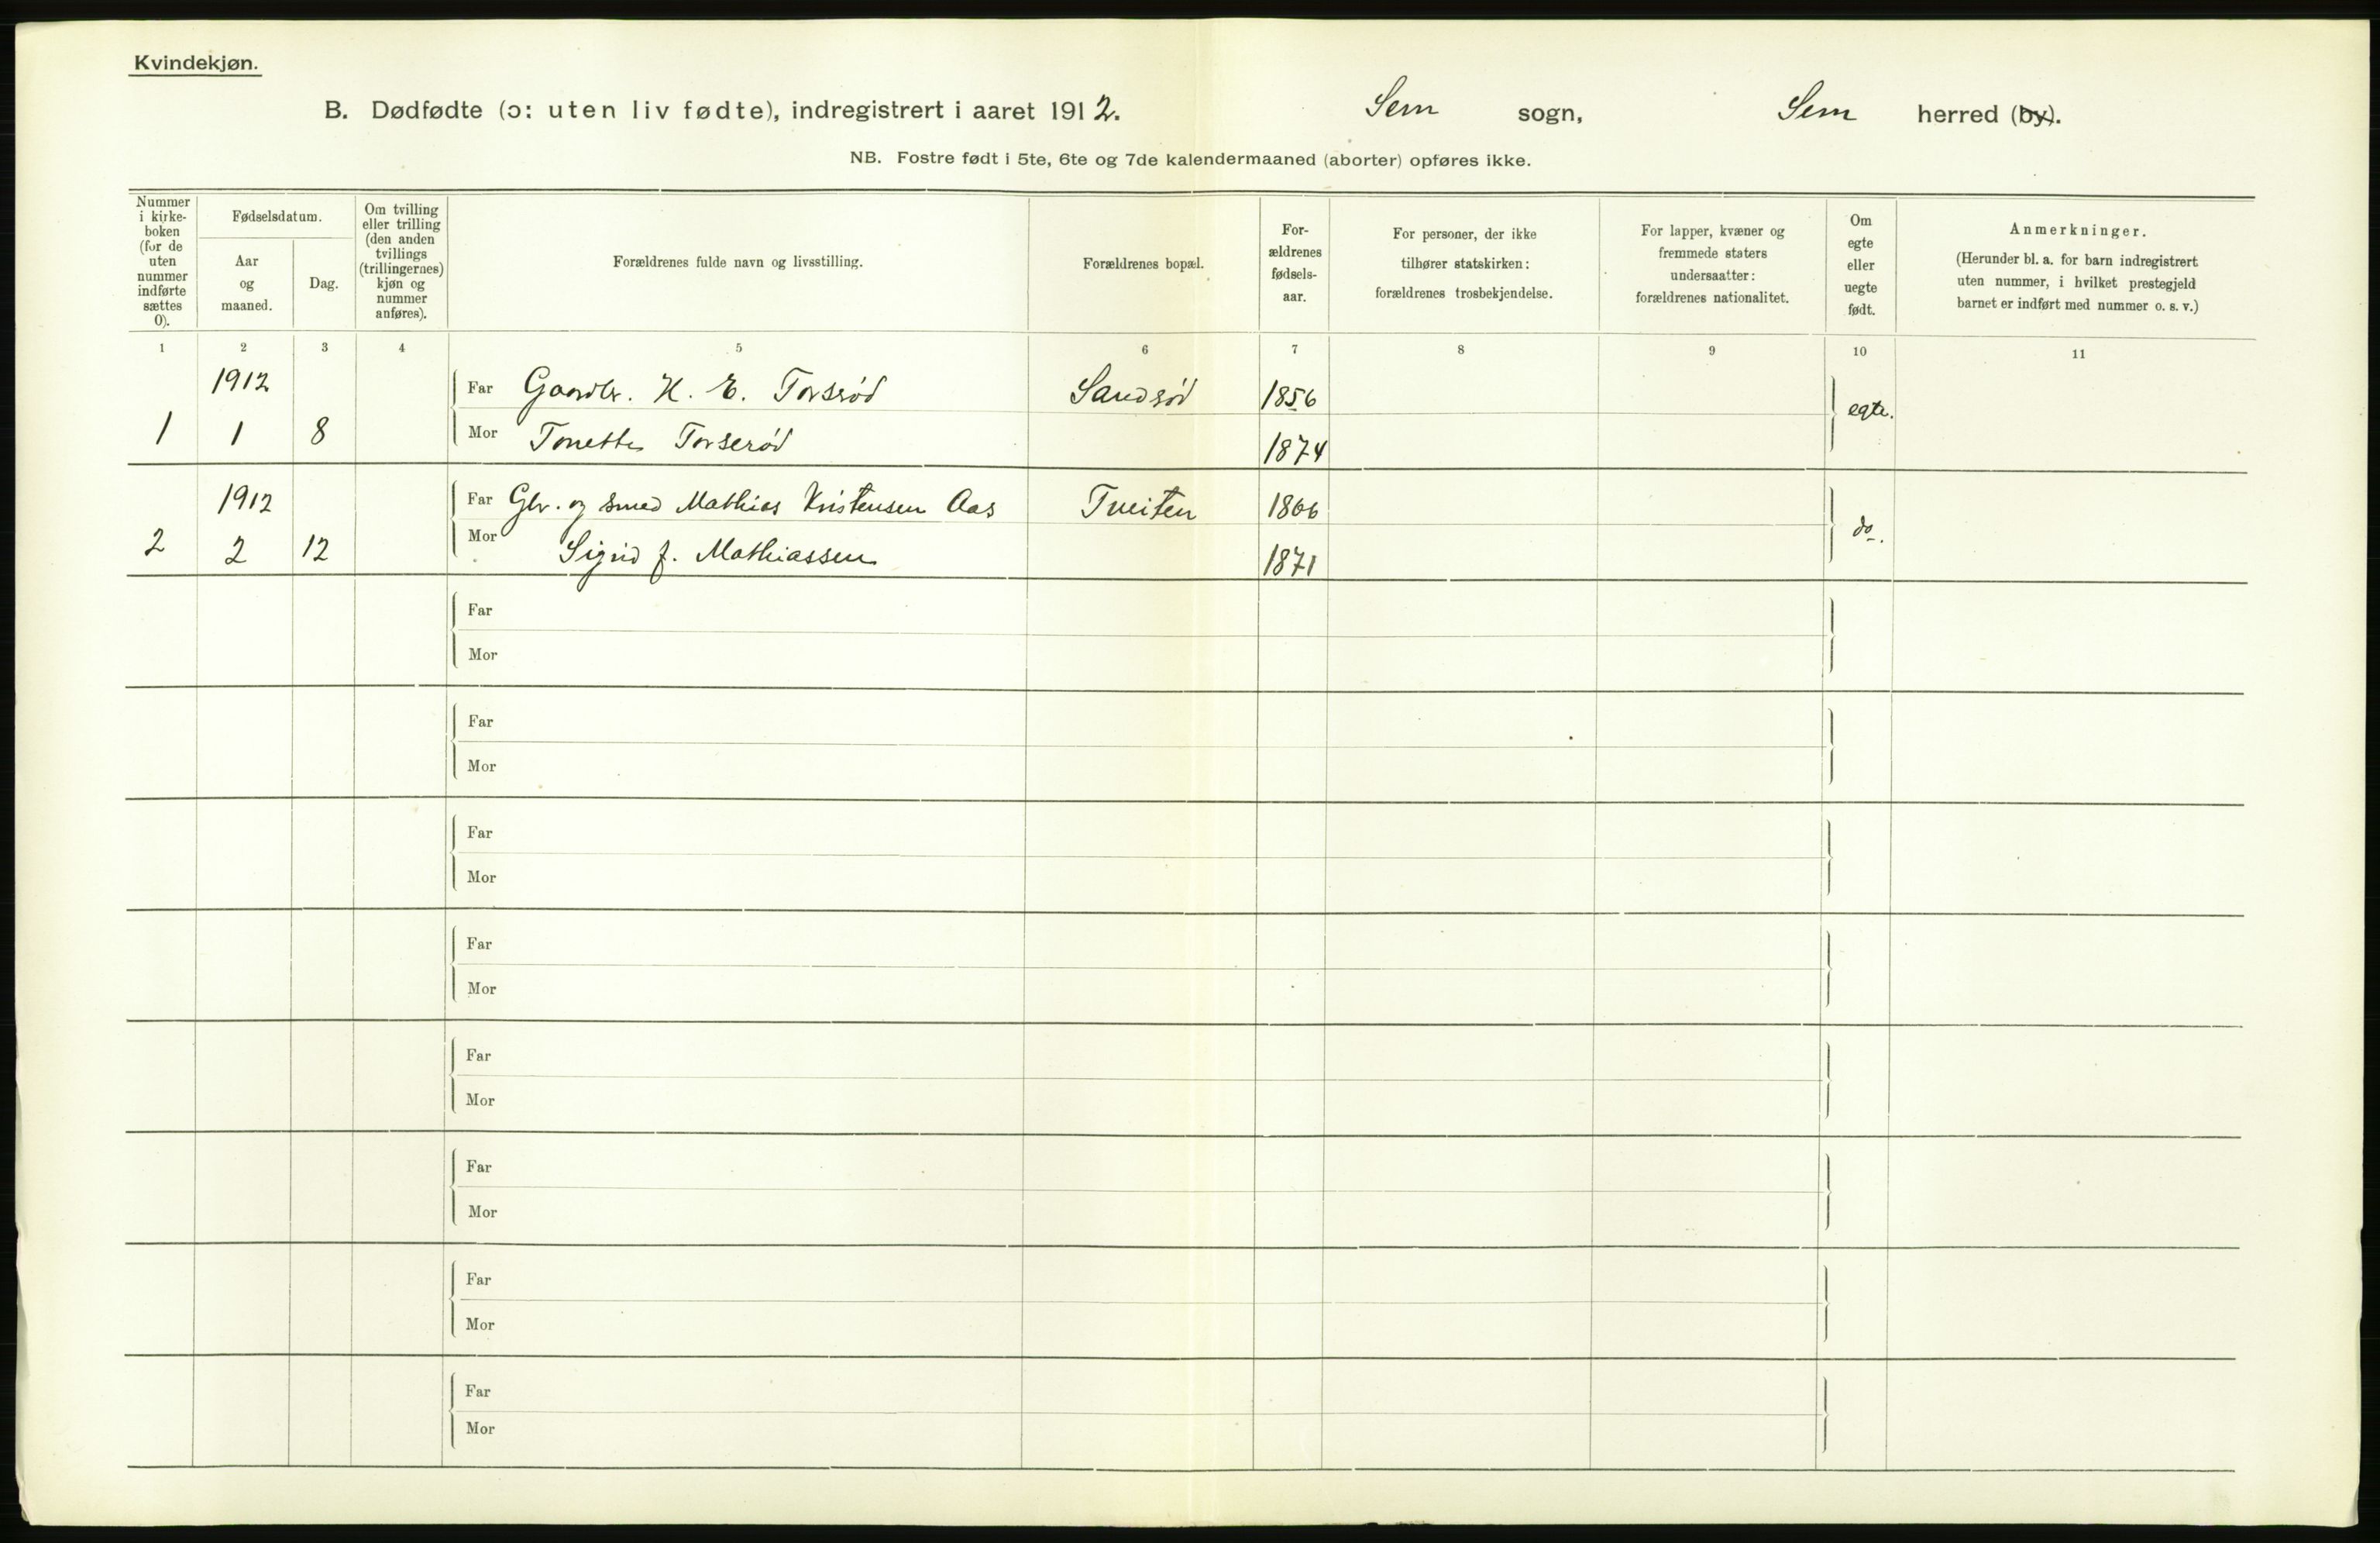 Kvindekjøn.
B. Dødfødte (ɔ: uten liv fødte), indregistrert i aaret 1912. Sem sogn, Sem herred (by).
NB. Fostre født i 5te, 6te og 7de kalendermaaned (aborter) opføres ikke.
Nummer
i kirke-
boken
(for de
uten
nummer
indførte
sættes
0).
Fødselsdatum.
Aar
og
maaned.
Dag.
Om tvilling
eller trilling
(den anden
tvillings
(trillingernes)
kjøn og
nummer
anføres).
Forældrenes fulde navn og livsstilling.
Forældrenes bopæl.
For-
ældrenes
fødsels-
aar.
For personer, der ikke
tilhører statskirken:
forældrenes trosbekjendelse.
For lapper, kvæner og
fremmede staters
undersaatter:
forældrenes nationalitet.
Om
egte
eller
uegte
født.
Anmerkninger.
(Herunder bl. a. for barn indregistrert
uten nummer, i hvilket prestegjeld
barnet er indført med nummer o. s. v.)
1 2 3 4 5 6 7 8 9 10 11
1912 Far Gaardbr. H. E. Torserød Sandsød 1856 egte.
1 1 8 Mor Tonette Torserød 1874
1912 Far Gbr. og smed Mathias Kristensen Aas Tveiten 1866 do.
2 2 12 Mor Sigrid f. Mathiassen 1871
Far
Mor
Far
Mor
Far
Mor
Far
Mor
Far
Mor
Far
Mor
Far
Mor
Far
Mor